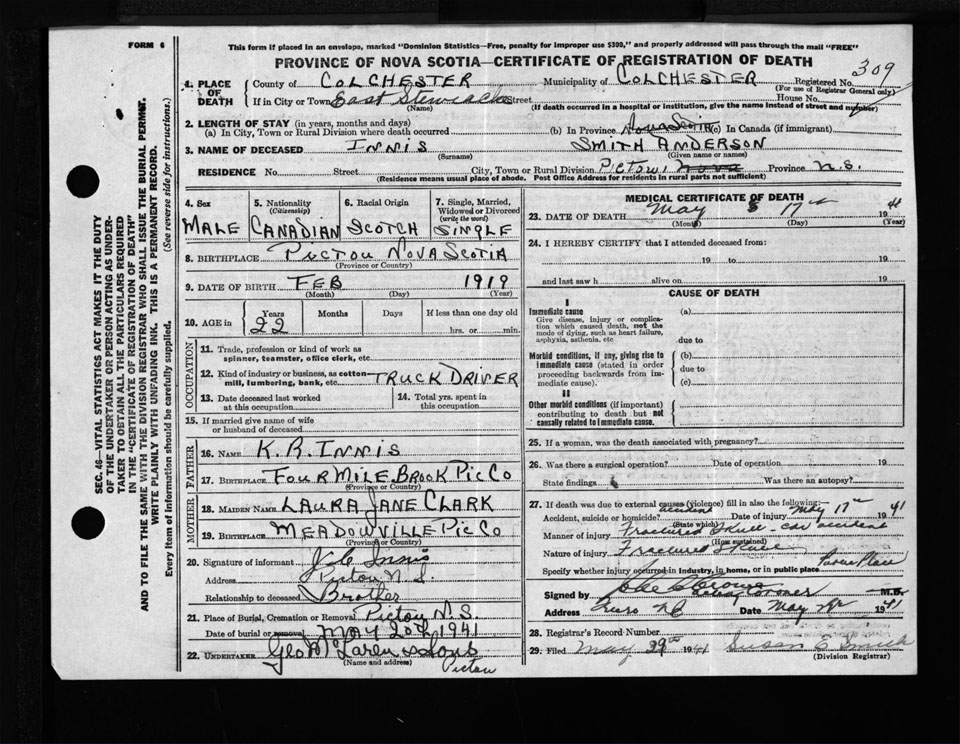 FORM 6
This form if placed in an envelope, marked "Dominion Statistics—Free, penalty for improper use $300," and properly addressed will pass through the mail "FREE"
PROVINCE OF NOVA SCOTIA—CERTIFICATE OF REGISTRATION OF DEATH
SEC. 46—VITAL STATISTICS ACT MAKES IT THE DUTY
OF THE UNDERTAKER OR PERSON ACTING AS UNDER-
TAKER TO OBTAIN ALL THE PARTICULARS REQUIRED
IN THE "CERTIFICATE OF REGISTRATION OF DEATH"
AND TO FILE THE SAME WITH THE DIVISION REGISTRAR WHO SHALL ISSUE THE BURIAL PERMIT.
WRITE PLAINLY WITH UNFADING INK. THIS IS A PERMANENT RECORD.
Every item of information should be carefully supplied. (See reverse side for instructions.)
1. PLACE OF DEATH
County of COLCHESTER Municipality of COLCHESTER Registered No. 309
(For use of Registrar General only)
If in City or Town East Stewiacke Street House No.
(Name) (If death occurred in a hospital or institution, give the name instead of street and number)
2. LENGTH OF STAY (in years, months and days)
(a) In City, Town or Rural Division where death occurred (b) In Province Nova Scotia (c) In Canada (if immigrant)
3. NAME OF DECEASED INNIS SMITH ANDERSON
(Surname) (Given name or names)
RESIDENCE No. Street City, Town or Rural Division PICTOU Nova Province N.S.
(Residence means usual place of abode. Post Office Address for residents in rural parts not sufficient)
4. Sex MALE
5. Nationality (Citizenship) CANADIAN
6. Racial Origin SCOTCH
7. Single, Married, Widowed or Divorced (write the word) SINGLE
8. BIRTHPLACE PICTOU NOVA SCOTIA
(Province or Country)
9. DATE OF BIRTH FEB 1919
(Month) (Day) (Year)
10. AGE in Years Months Days If less than one day old
22 hrs. or min.
OCCUPATION
11. Trade, profession or kind of work as
spinner, teamster, office clerk, etc
12. Kind of industry or business, as cotton-
mill, lumbering, bank, etc. TRUCK DRIVER
13. Date deceased last worked
at this occupation
14. Total yrs. spent in
this occupation
15. If married give name of wife
or husband of deceased
FATHER
16. NAME K. R. INNIS
17. BIRTHPLACE FOUR MILE BROOK PIC CO
(Province or Country)
MOTHER
18. MAIDEN NAME LAURA JANE CLARK
19. BIRTHPLACE MEADOWVILLE PIC CO
(Province or Country)
20. Signature of informant Innis
Address Pictou N.S.
Relationship to deceased Brother
21. Place of Burial, Cremation or Removal PICTOU N.S.
Date of burial or removal MAY 20th 1941
22. UNDERTAKER Geo McLaren & Sons
(Name and address) Pictou
MEDICAL CERTIFICATE OF DEATH
23. DATE OF DEATH May 17th 1941
(Month) (Day)
24. I HEREBY CERTIFY that I attended deceased from:
19 to 19
and last saw h alive on 19
CAUSE OF DEATH
I
Immediate cause (a)
Give disease, injury or complica-
tion which caused death, not the
mode of dying, such as heart failure,
asphyxia, asthenia, etc
due to
Morbid conditions, if any, giving rise to
immediate cause (stated in order
proceeding backwards from im-
mediate cause).
(b)
due to
(c)
II
Other morbid conditions (if important)
contributing to death but not
causally related to immediate cause.
25. If a woman, was the death associated with pregnancy?
26. Was there a surgical operation? Date of operation 19
State findings Was there an autopsy?
27. If death was due to external causes (violence) fill in also the following:
Accident, suicide or homicide? accident Date of injury May 17th 1941
(State which)
Manner of injury Fractured Skull - car accident
(How sustained)
Nature of injury Fractured Skull
Specify whether injury occurred in industry, in home, or in public place Public Place
Signed by M.D.
Acting Coroner
Address Truro N.S. Date May 1941
28. Registrar's Record Number
29. Filed May 29th 1941 Susan E. Smith
(Division Registrar)